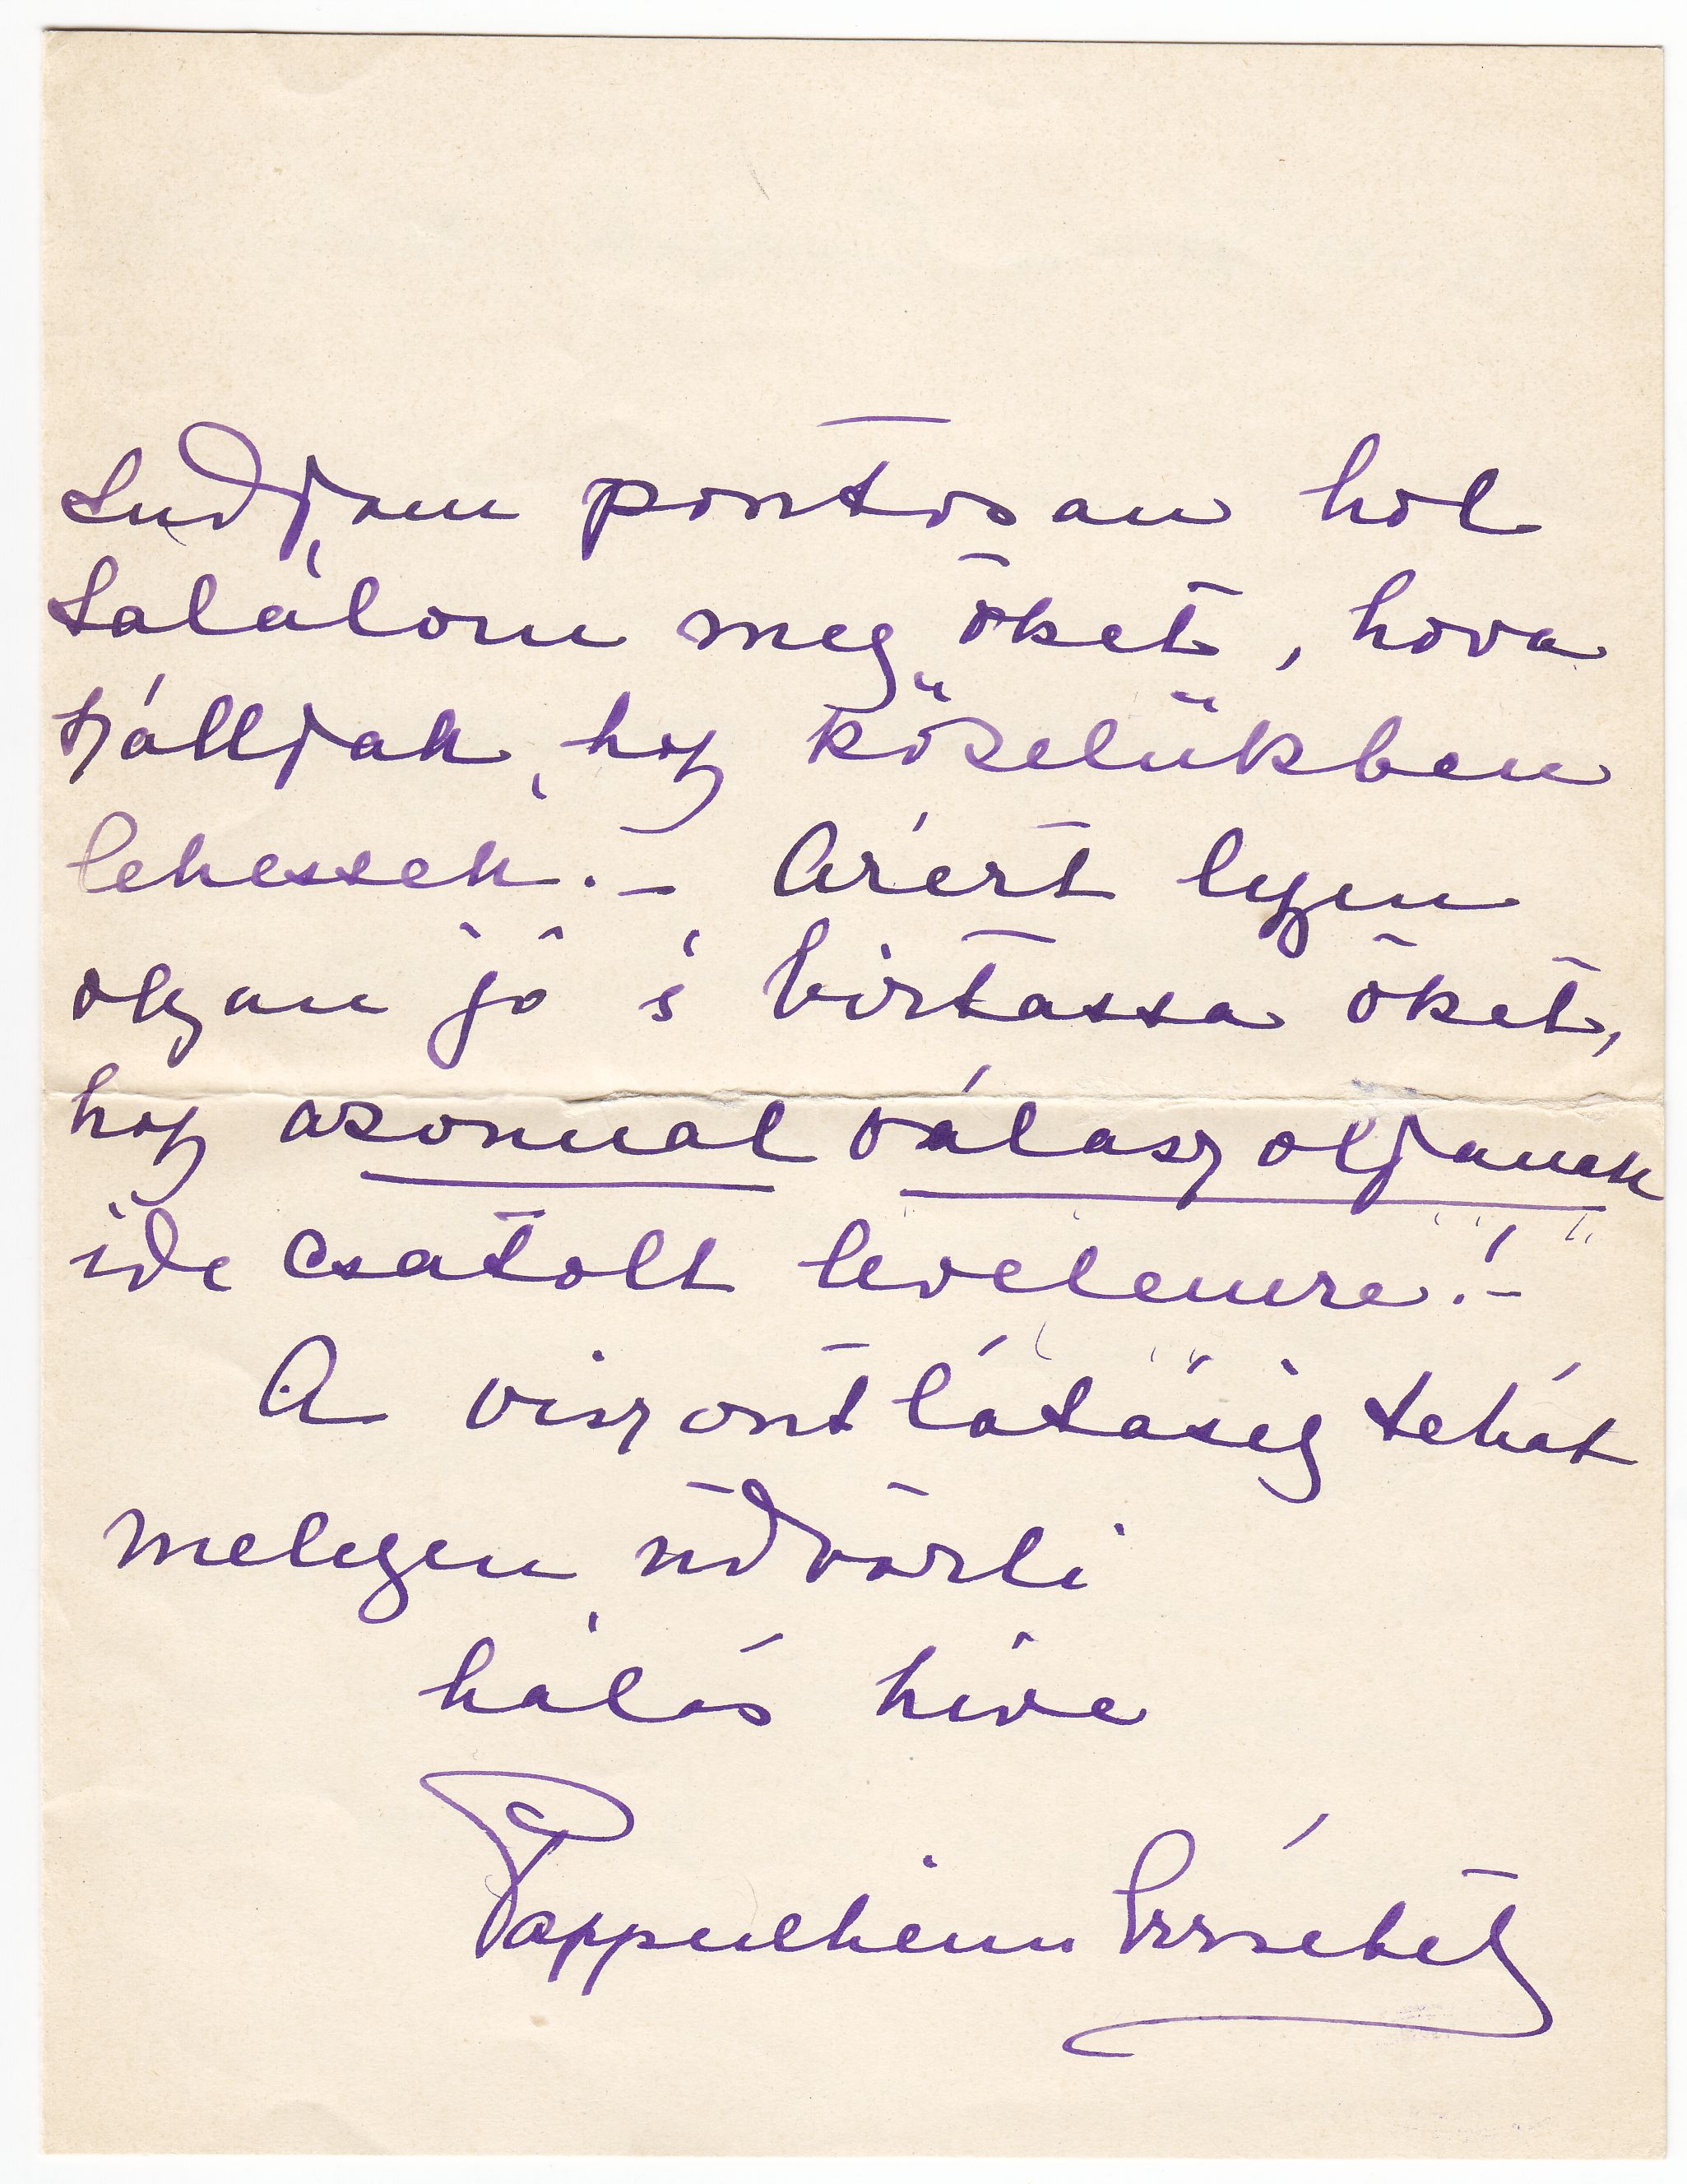 tudjam pontosan hol
találom meg őket, hova
szálljak, hogy közelükben
lehessek. – Azért legyen
olyan jó s biztassa őket,
hogy azonnal válaszoljanak
ide csatolt levelemre! –
A viszontlátásig tehát
melegen üdvözli
hálás híve
Pappenheim Erzsébet